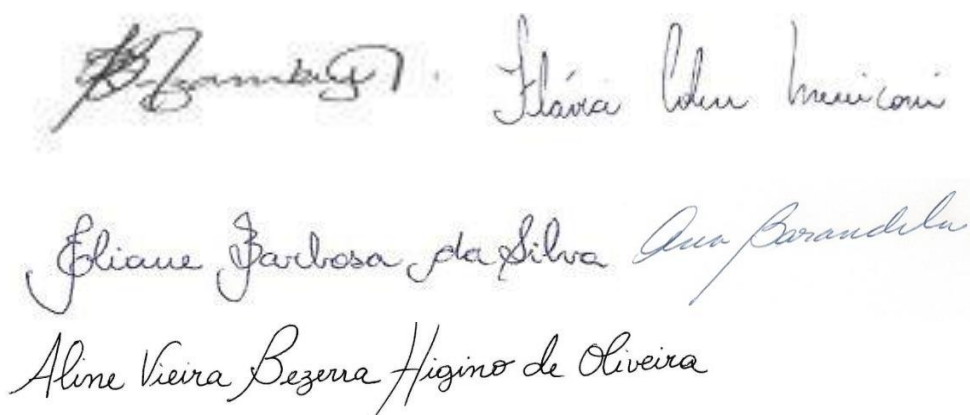 Flávia Colen Meniconi
Eliane Barbosa da Silva Ana Barandela
Aline Vieira Bezerra Higino de Oliveira